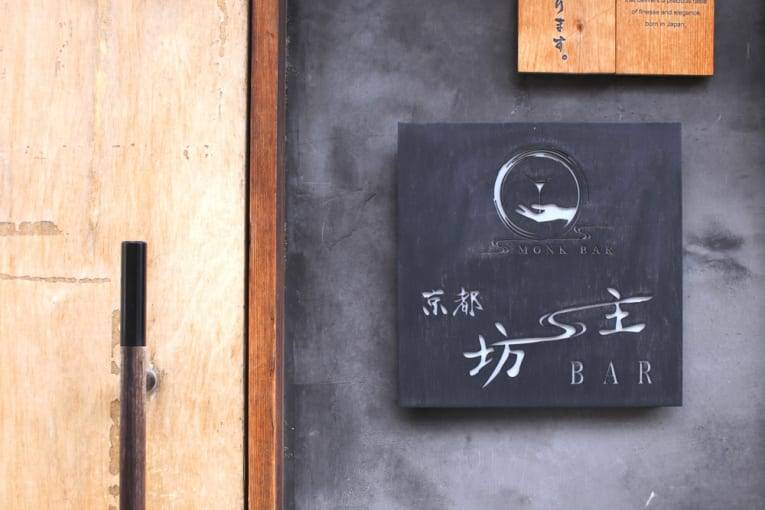 ります。
that delivers a precious taste
of finesse and elegance,
born in Japan.
MONK BAR
京都
坊主
BAR